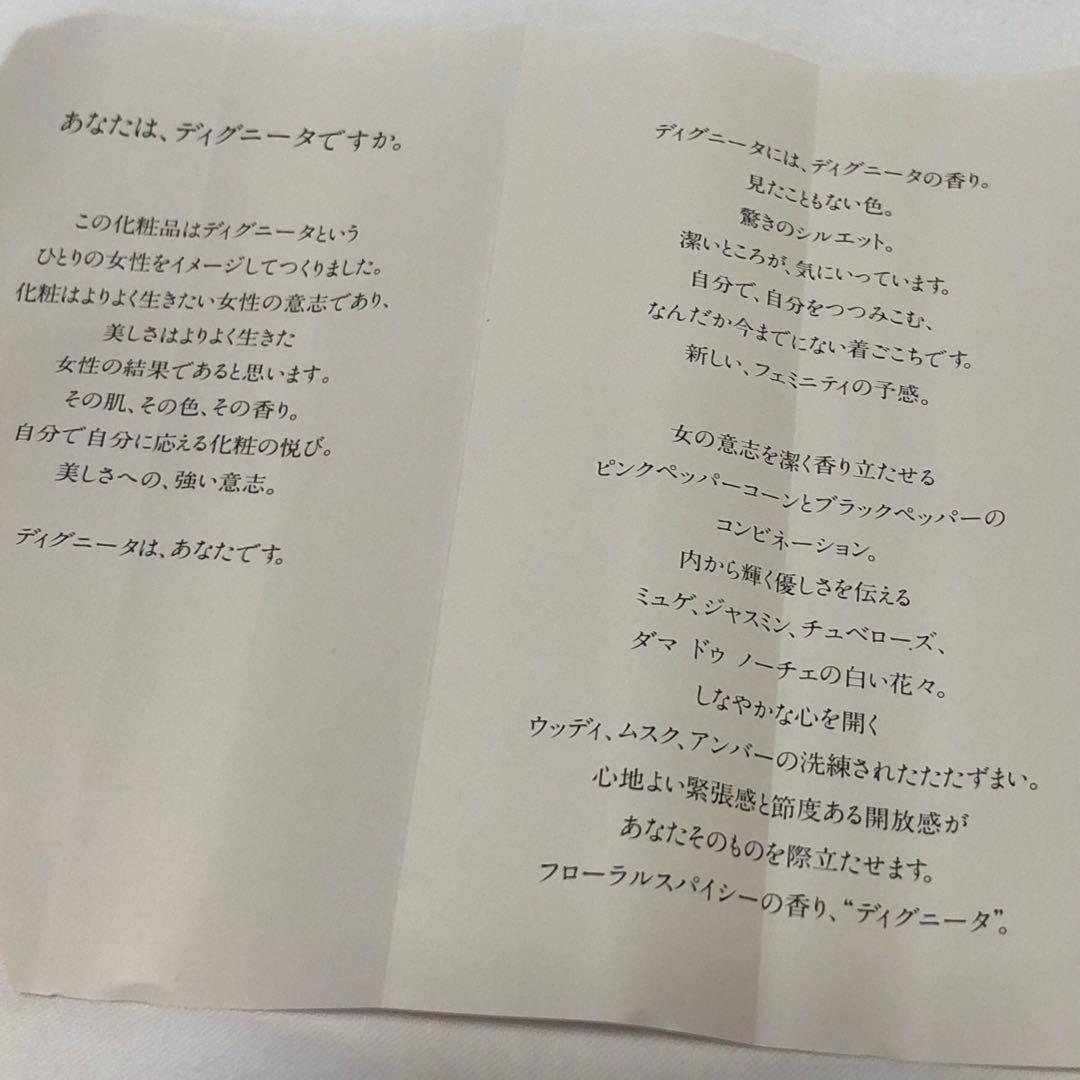 あなたは、ディグニータですか。
この化粧品はディグニータという
ひとりの女性をイメージしてつくりました。
化粧はよりよく生きたい女性の意志であり、
美しさはよりよく生きた
女性の結果であると思います。
その肌、その色、その香り。
自分で自分に応える化粧の悦び。
美しさへの、強い意志。
ディグニータは、あなたです。
ディグニータには、ディグニータの香り。
見たこともない色。
驚きのシルエット。
潔いところが、気にいっています。
自分で、自分をつつみこむ、
なんだか今までにない着ごこちです。
新しい、フェミニティの予感。
女の意志を潔く香り立たせる
ピンクペッパーコーンとブラックペッパーの
コンビネーション。
内から輝く優しさを伝える
ミュゲ、ジャスミン、チュベローズ、
ダマ ドゥ ノーチェの白い花々。
しなやかな心を開く
ウッディ、ムスク、アンバーの洗練されたたたずまい。
心地よい緊張感と節度ある開放感が
あなたそのものを際立たせます。
フローラルスパイシーの香り、“ディグニータ”。